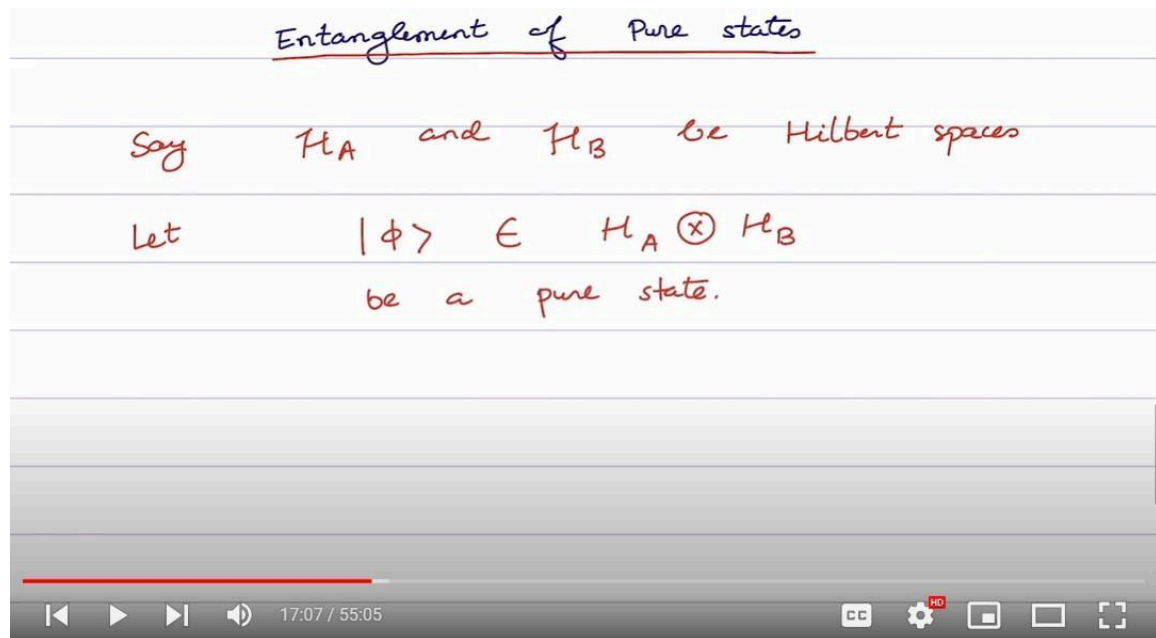 Entanglement of Pure states
Say H_A and H_B be Hilbert spaces
Let |ϕ> ∈ H_A ⊗ H_B
be a pure state.
17:07 / 55:05
CC HD